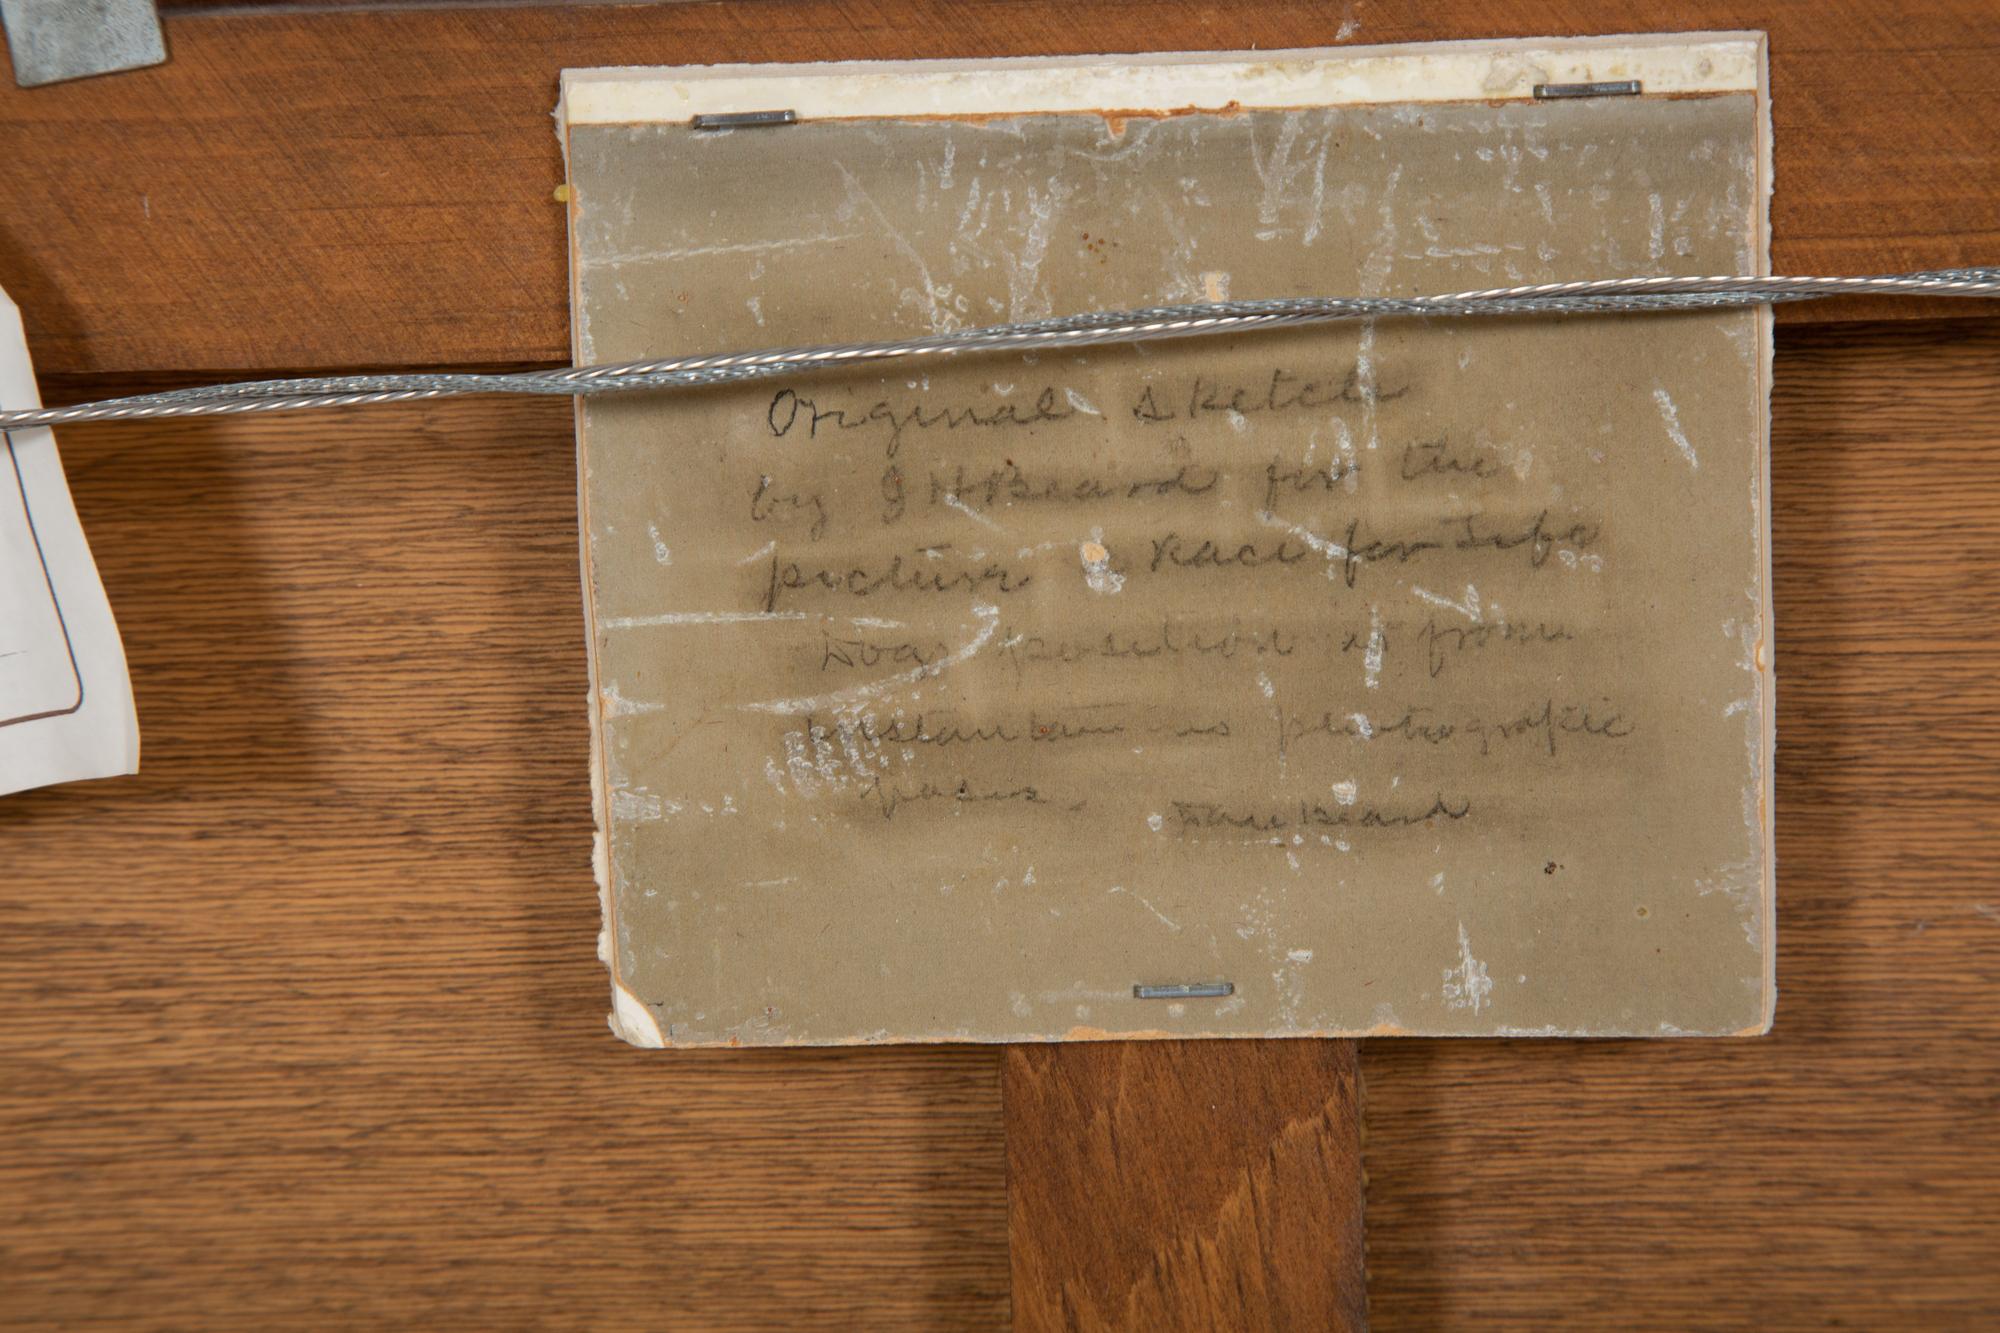 Original Sketch
by J H Beard for the
picture a Race for Life
Dogs position is from
instantaneous photografic
poses. Dan Beard